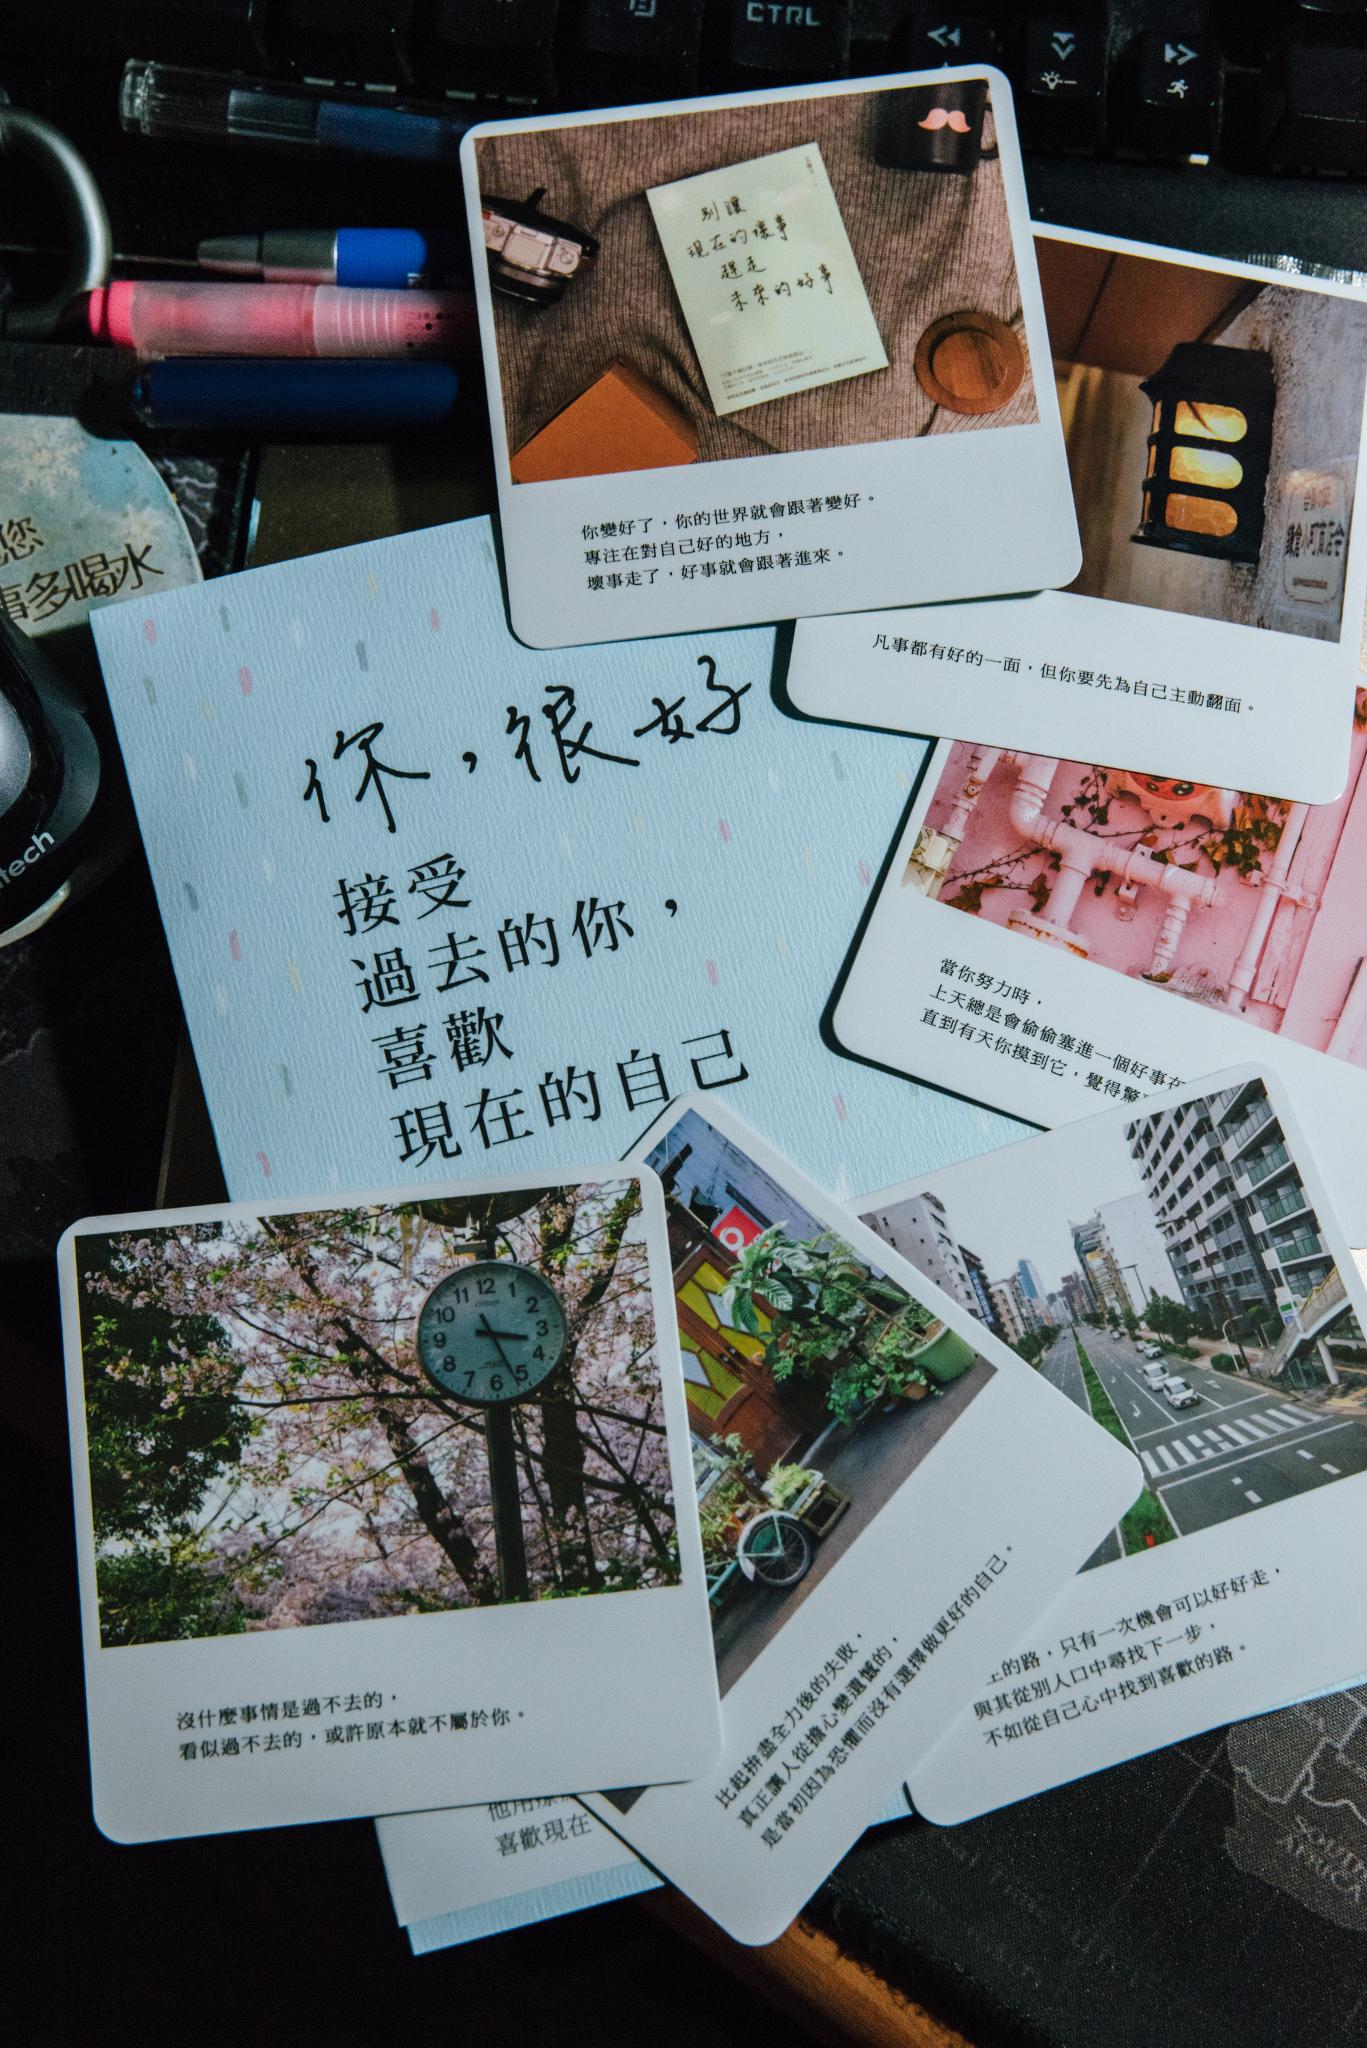 CTRL
別讓
現在的壞事
趕走
未來的好事
你變好了，你的世界就會跟著變好。
專注在對自己好的地方，
壞事走了，好事就會跟著進來。
鎌倉小町商店会
凡事都有好的一面，但你要先為自己主動翻面。
您
事多喝水
tech
你，很好
接受
過去的你，
喜歡
現在的自己
當你努力時，
上天總是會偷偷塞進一個好事在
直到有天你摸到它，覺得驚
12
1
2
3
4
5
6
7
8
9
10
11
CITIZEN
沒什麼事情是過不去的，
看似過不去的，或許原本就不屬於你。
比起拚盡全力後的失敗，
真正讓人從擔心變遺憾的，
是當初因為恐懼而沒有選擇做更好的自己。
上的路，只有一次機會可以好好走，
與其從別人口中尋找下一步，
不如從自己心中找到喜歡的路。
喜歡現在
SOUTH
AMERICA